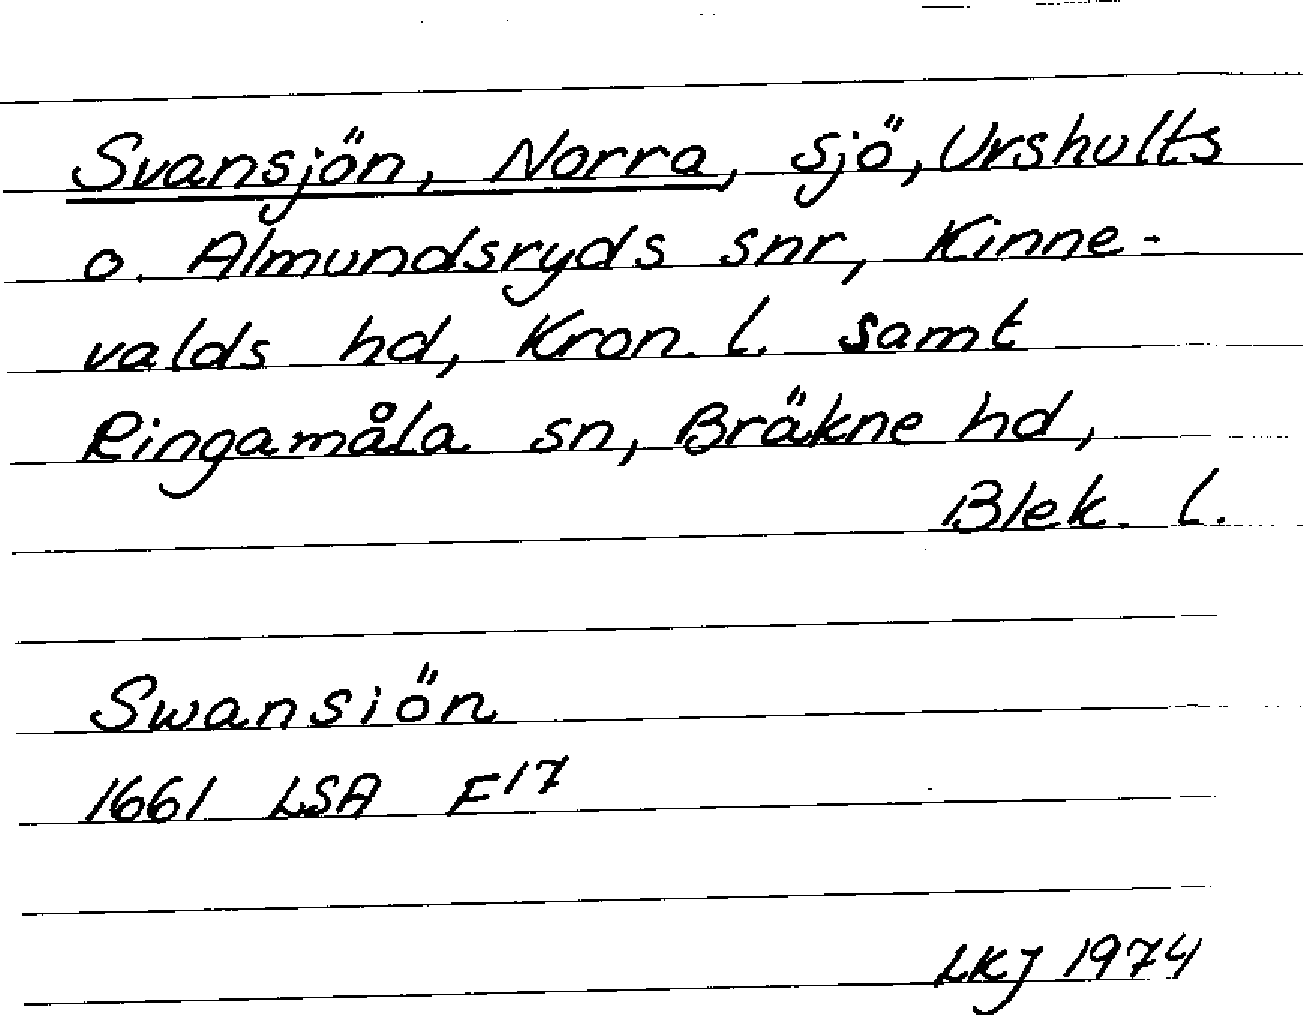 Svansjön, Norra, sjö, Urshults
o. Almundsryds snr, Kinne-
valds hd, Kron. l. samt
Ringamåla sn, Bräkne hd,
Blek. l.
Swansiön
1661 LSA F17
LKJ 1974